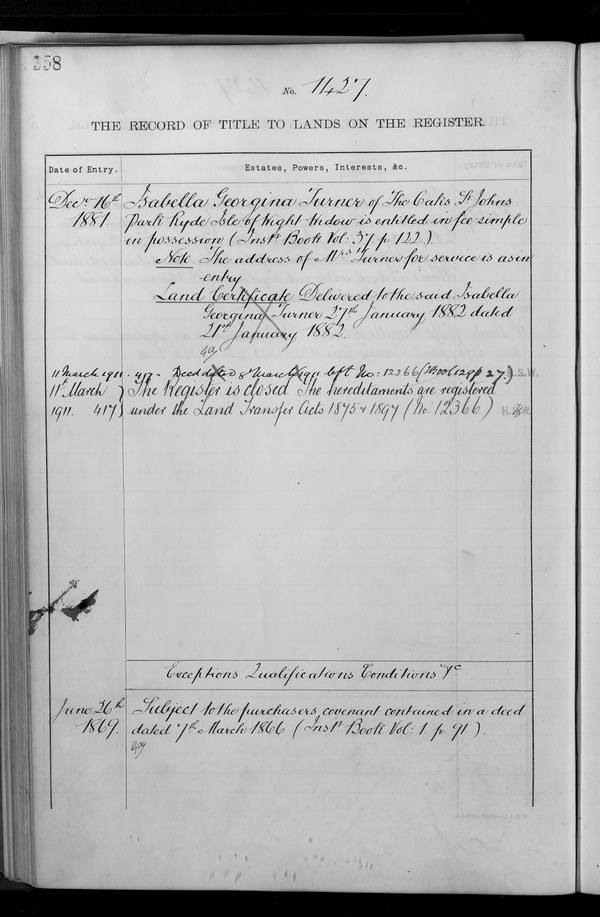 358
No. 1427.
THE RECORD OF TITLE TO LANDS ON THE REGISTER.
Date of Entry. Estates, Powers, Interests, &c.
Decr. 16th Isabella Georgina Turner of The Oaks St Johns
1881. Park Ryde Isle of Wight Widow is entitled in fee simple
in possession (Instt. Book Vol: 37 p 122).
Note. The address of Mrs. Turner for service is as in
entry
Land Certificate Delivered to the said Isabella
Georgina Turner 27th January 1882 dated
21st January 1882.
11 March 1911. 417. Deed dated 8 March 1911 left No: 12366 (Book 129 p 27.)
11th March ) The Register is closed The hereditaments are registered
1911. 417) under the Land Transfer Acts 1875 & 1897 (No: 12366)
Exceptions Qualifications Conditions &c
June 26th Subject to the purchasers covenant contained in a deed
1869. dated 7th March 1866 (Instt. Book Vol: 1 p. 91).